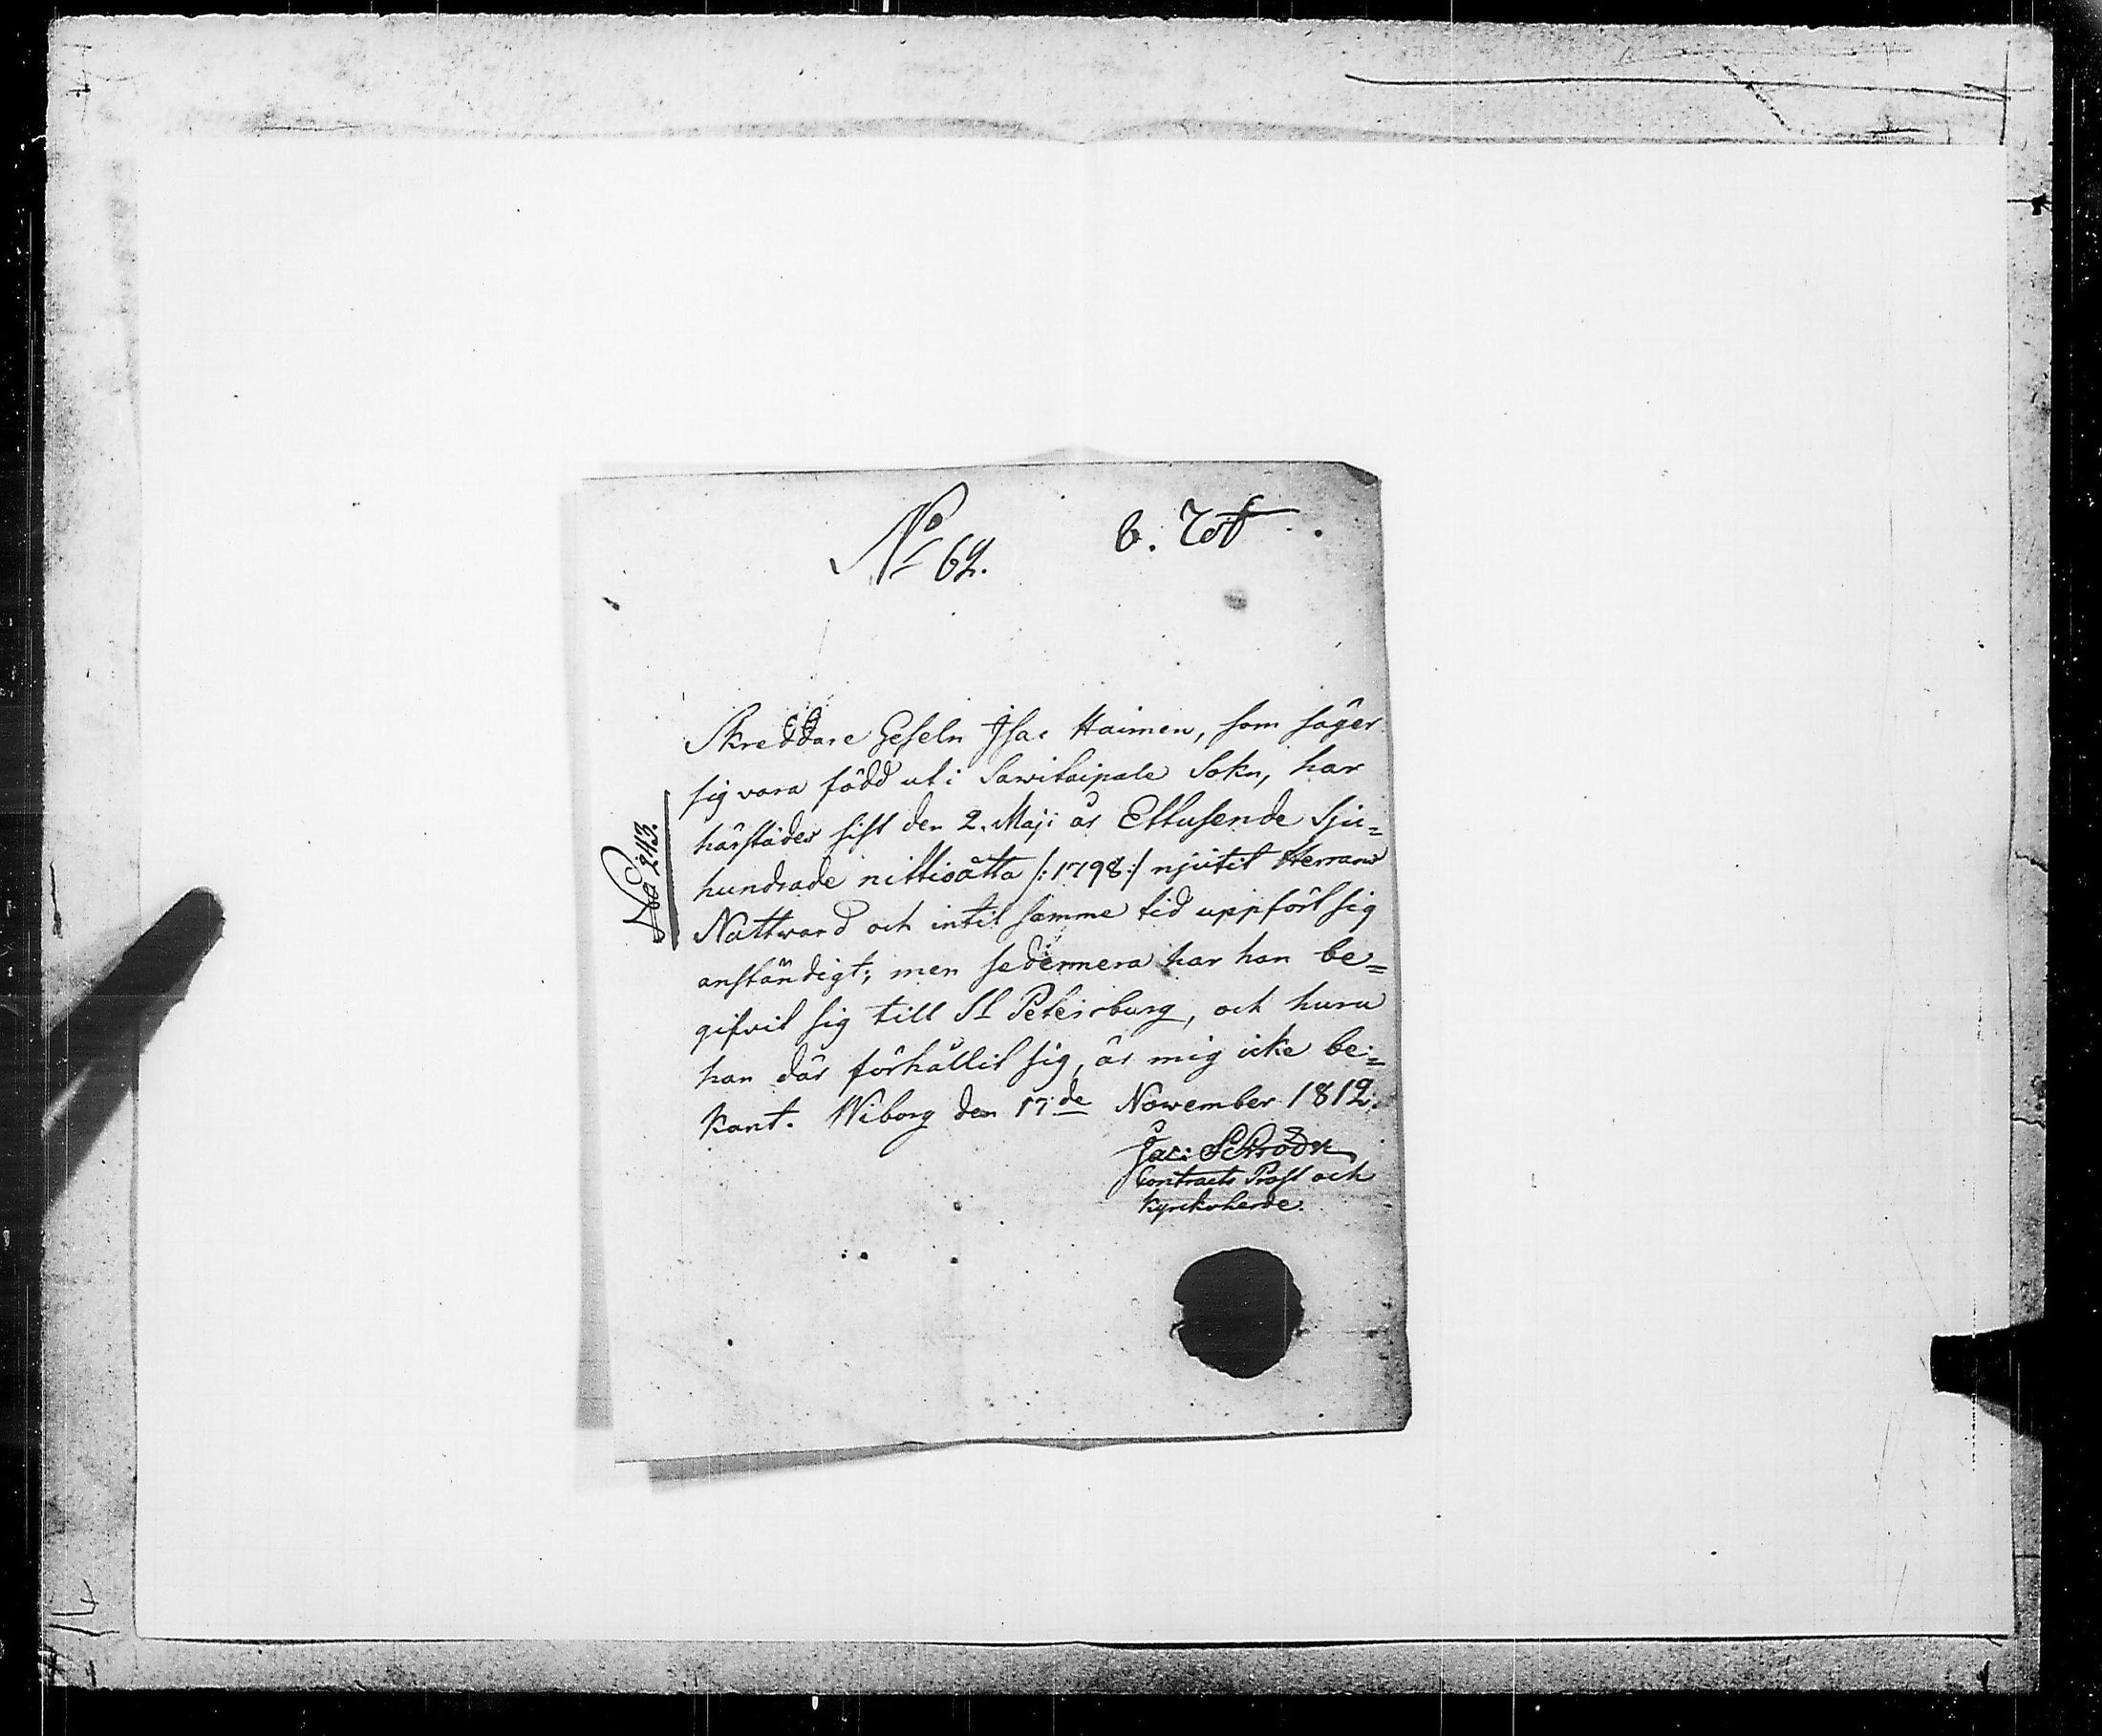 No 62.
Skreddare Geseln Isac Haimen, som säger
sig vara född uti Sawitaipale Sokn, har
härstädes sist den 2. Maji år Ettusende Sju=
hundrade nittioåtta /:1798:/ njutit Herrans
Nattward och intil samme tid uppfört sig
anständigt; men sedermera har han be=
gifvit sig till St Petersburg, och huru
han där förhållit sig, är mig icke be=
kant. Wiborg den 17de November 1812.
Jac: Schröder
Contracts Prost och
Kyrckoherde.
243.